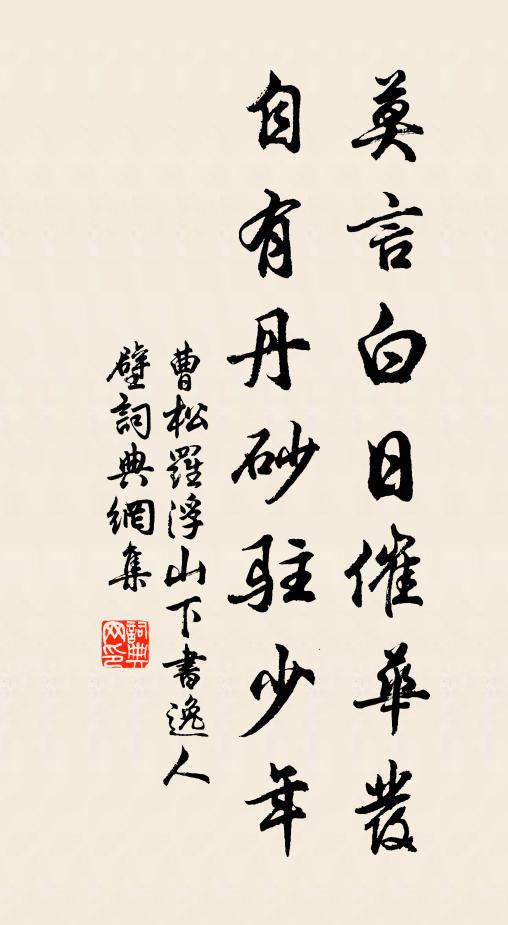 莫言白日催華發
自有丹砂駐少年
曹松羅浮山下書逸人
壁詞典網集
詞典網印